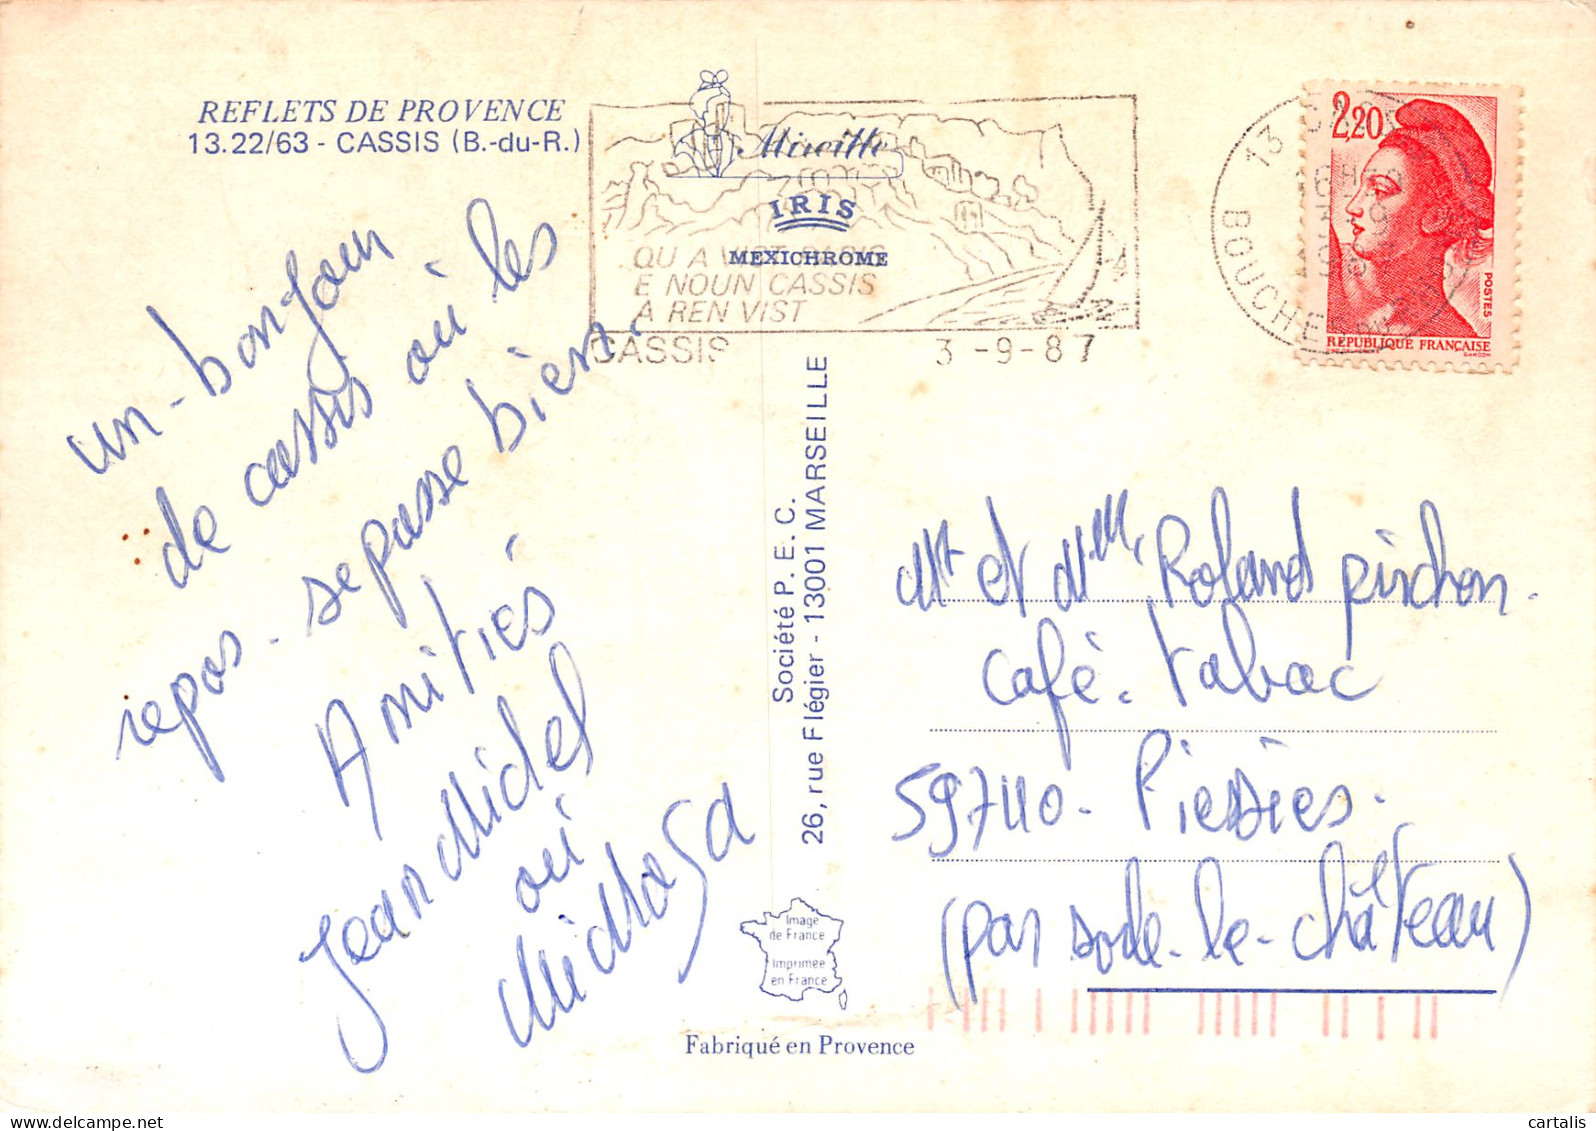 REFLETS DE PROVENCE
13.22/63 - CASSIS (B.-du-R.)
Mireille
IRIS
MEXICHROME
QU A VIST PARIS
E NOUN CASSIS
A REN VIST
CASSIS
3 -9-87
13 CASSIS
BOUCHES
2,20
POSTES
RÉPUBLIQUE FRANÇAISE
GANDON
un-bonjour
de cassis où les
repos - se passe bien.
Amitiés
Jean Michel
ou
Société P. E. C.
26, rue Flégier - 13001 MARSEILLE
Mr et Mme Roland pinchon.
Café. tabac
59740 -
(par solre-le-château)
Image
de France
Imprimée
en France
Fabriqué en Provence
www.delcampe.net
cartalis